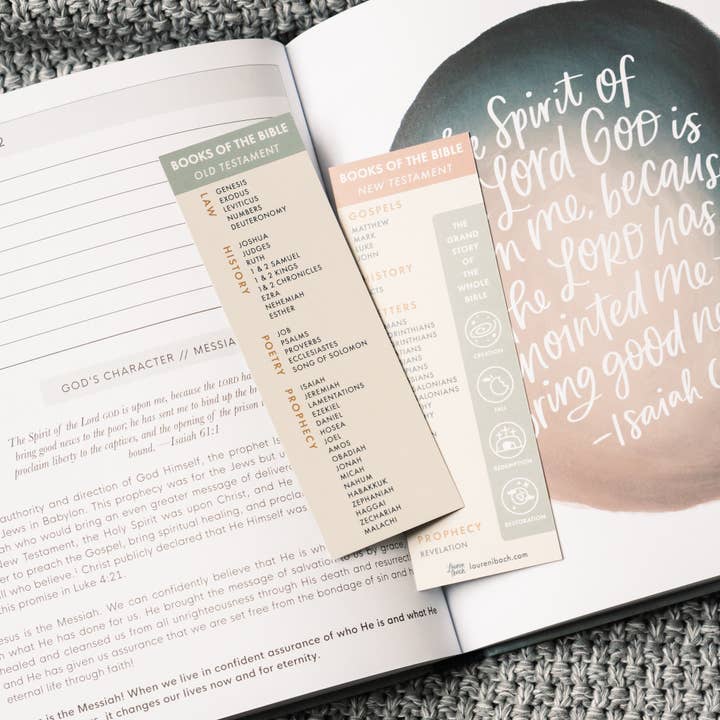 2
GOD'S CHARACTER // MESSIA
The Spirit of the Lord GOD is upon me, because the LORD ha
bring good news to the poor; he has sent me to bind up the br
proclaim liberty to the captives, and the opening of the prison
bound. —Isaiah 61:1
authority and direction of God Himself, the prophet Is
Jews in Babylon. This prophecy was for the Jews but u
ah who would bring an even greater message of delivera
New Testament, the Holy Spirit was upon Christ, and He
er to preach the Gospel, bring spiritual healing, and proclai
all who believe. Christ publicly declared that He Himself was
this promise in Luke 4:21.
esus is the Messiah. We can confidently believe that He is wh
what He has done for us. He brought the message of salvation to us by grace,
healed and cleansed us from all unrighteousness through His death and resurrect
and He has given us assurance that we are set free from the bondage of sin and h
eternal life through faith!
is the Messiah! When we live in confident assurance of who He is and what He
it changes our lives now and for eternity.
BOOKS OF THE BIBLE
OLD TESTAMENT
LAW
GENESIS
EXODUS
LEVITICUS
NUMBERS
DEUTERONOMY
HISTORY
JOSHUA
JUDGES
RUTH
1 & 2 SAMUEL
1 & 2 KINGS
1 & 2 CHRONICLES
EZRA
NEHEMIAH
ESTHER
POETRY
JOB
PSALMS
PROVERBS
ECCLESIASTES
SONG OF SOLOMON
PROPHECY
ISAIAH
JEREMIAH
LAMENTATIONS
EZEKIEL
DANIEL
HOSEA
JOEL
AMOS
OBADIAH
JONAH
MICAH
NAHUM
HABAKKUK
ZEPHANIAH
HAGGAI
ZECHARIAH
MALACHI
BOOKS OF THE BIBLE
NEW TESTAMENT
GOSPELS
MATTHEW
MARK
LUKE
JOHN
HISTORY
CTS
TTERS
ANS
RINTHIANS
RINTHIANS
PROPHECY
REVELATION
THE
GRAND
STORY
OF THE
WHOLE
BIBLE
CREATION
FALL
REDEMPTION
RESTORATION
laurenibach.com
e Spirit of
Lord GOD is
n me, becaus
he LORD has
nointed me
ring good n
—Isaiah